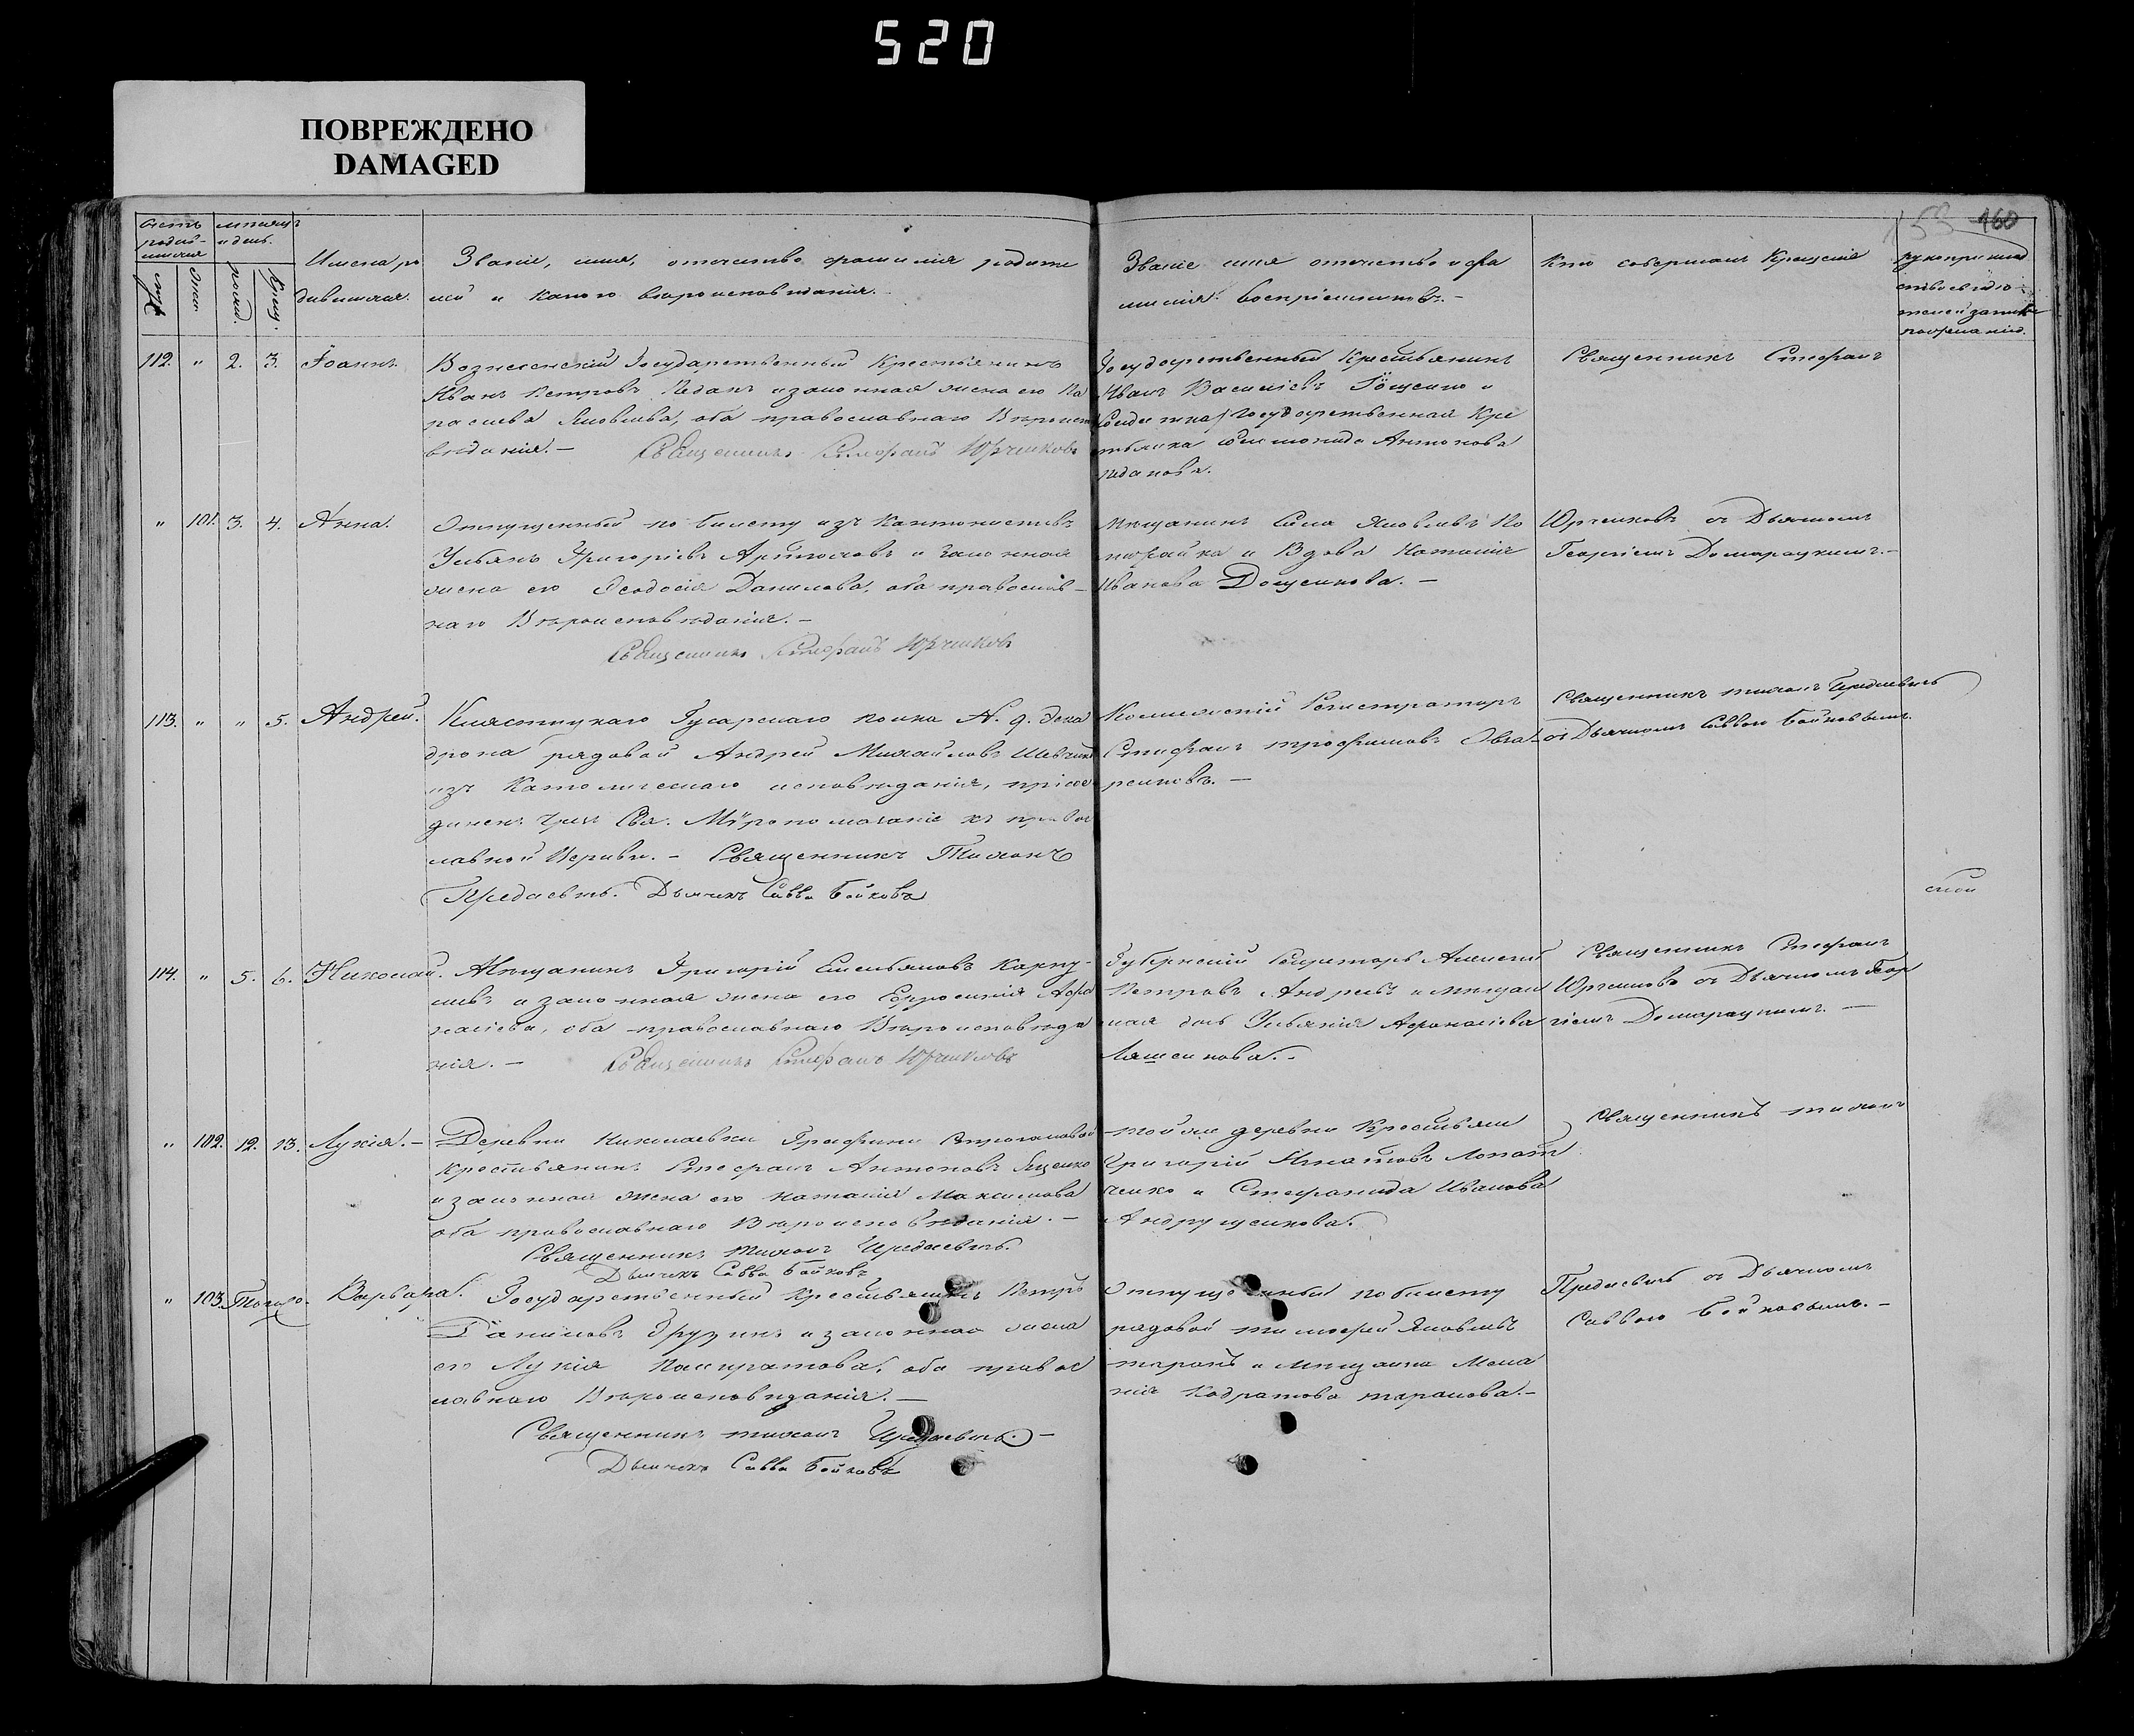 520
ПОВРЕЖДЕНО
DAMAGED
153 160
Счетъ родив-
шихся
Мѣсяцъ
и день.
муж
женс
рожд.
крещ.
Имена ро
дившихся.
Званіе, имя, отечество фамилія родите
лей и какого вѣроисповѣданія.
Званіе имя отечество и фа
милія воспріемниковъ.
Кто совершалъ Крещеніе
Рукоприклад
ство свидѣ
телей записи
по желанію.
112. " 2. 3. Іоаннъ.
Вознесенскій Государственный Крестьянинъ
Иванъ Петровъ Педанъ и законная жена его Па
раскева Яковлева, оба православнаго Вѣроиспо
вѣданія. — Священникъ Стефанъ Юрченковъ
Государственный Крестьянинъ
Иванъ Василіевъ и
Государственная Кре
стьянка Антонова
Педанова.
Священникъ Стефанъ
" 101. 3. 4. Анна.
Отпущенный по билету изъ Кантонистовъ
Ульянъ Григоріевъ и законная
жена его Ѳеодосія Данилова, оба православ-
наго Вѣроисповѣданія. —
Священникъ Стефанъ Юрченковъ
Мѣщанинъ Сила Яковлевъ
и Вдова Наталія
Иванова Дощенкова. —
Юрченковъ съ Дьячкомъ
Георгіемъ Домарацкимъ. —
113. " " 5. Андрей.
Клястицкаго Гусарскаго полка N. 9. эска
дрона рядовой Андрей Михайловъ
изъ Католическаго исповѣданія, присое
диненъ чрез Свя. Мѵропомазаніе къ правос
лавной Церкви. — Священникъ Тихонъ
Дьячекъ Савва Бойковъ
Коллежскій Регистраторъ
Стефанъ Трофимовъ Овча
ренковъ. —
Священникъ Тихонъ
съ Дьячкомъ Саввою Бойковымъ.
114. " 5. 6. Николай.
Мѣщанинъ Григорій Емельяновъ Карпу-
и законная жена его Евфросинія Афа
насіева, оба православнаго Вѣроисповѣда
нія. — Священникъ Стефанъ Юрченковъ
Губернскій Секретарь Алексей
Петровъ Андреевъ и мѣщан
ская дочь Ульянія Афанасіева
Ляшенкова. —
Священникъ Стефанъ
Юрченковъ съ Дьячкомъ Геор
гіемъ Домарацкимъ. —
" 102. 12. 13. Лукія. —
Деревни Николаевки Графини Строгановой
Крестьянинъ Стефанъ Антоновъ Ященко
и законная жена его Наталія Максимова
оба православнаго Вѣроисповѣданія. —
Священникъ Тихонъ
Дьячекъ Савва Бойковъ
той же деревни Крестьяне
Григорій Игнатовъ Лопат
ченко и Стефанида Иванова
Андрущенкова.
Священникъ Тихонъ
" 103. Тогоже. Варвара.
Государственный Крестьянинъ Петръ
Даниловъ и законная жена
его Лукія Панкратова, оба правос
лавнаго Вѣроисповѣданія. —
Священникъ Тихонъ
Дьячекъ Савва Бойковъ
Отпущенный по билету
рядовой Тимофей Яковлевъ
Таранъ и мѣщанка Мела
нія Кодратова Таранова. —
съ Дьячкомъ
Саввою Бойковымъ. —